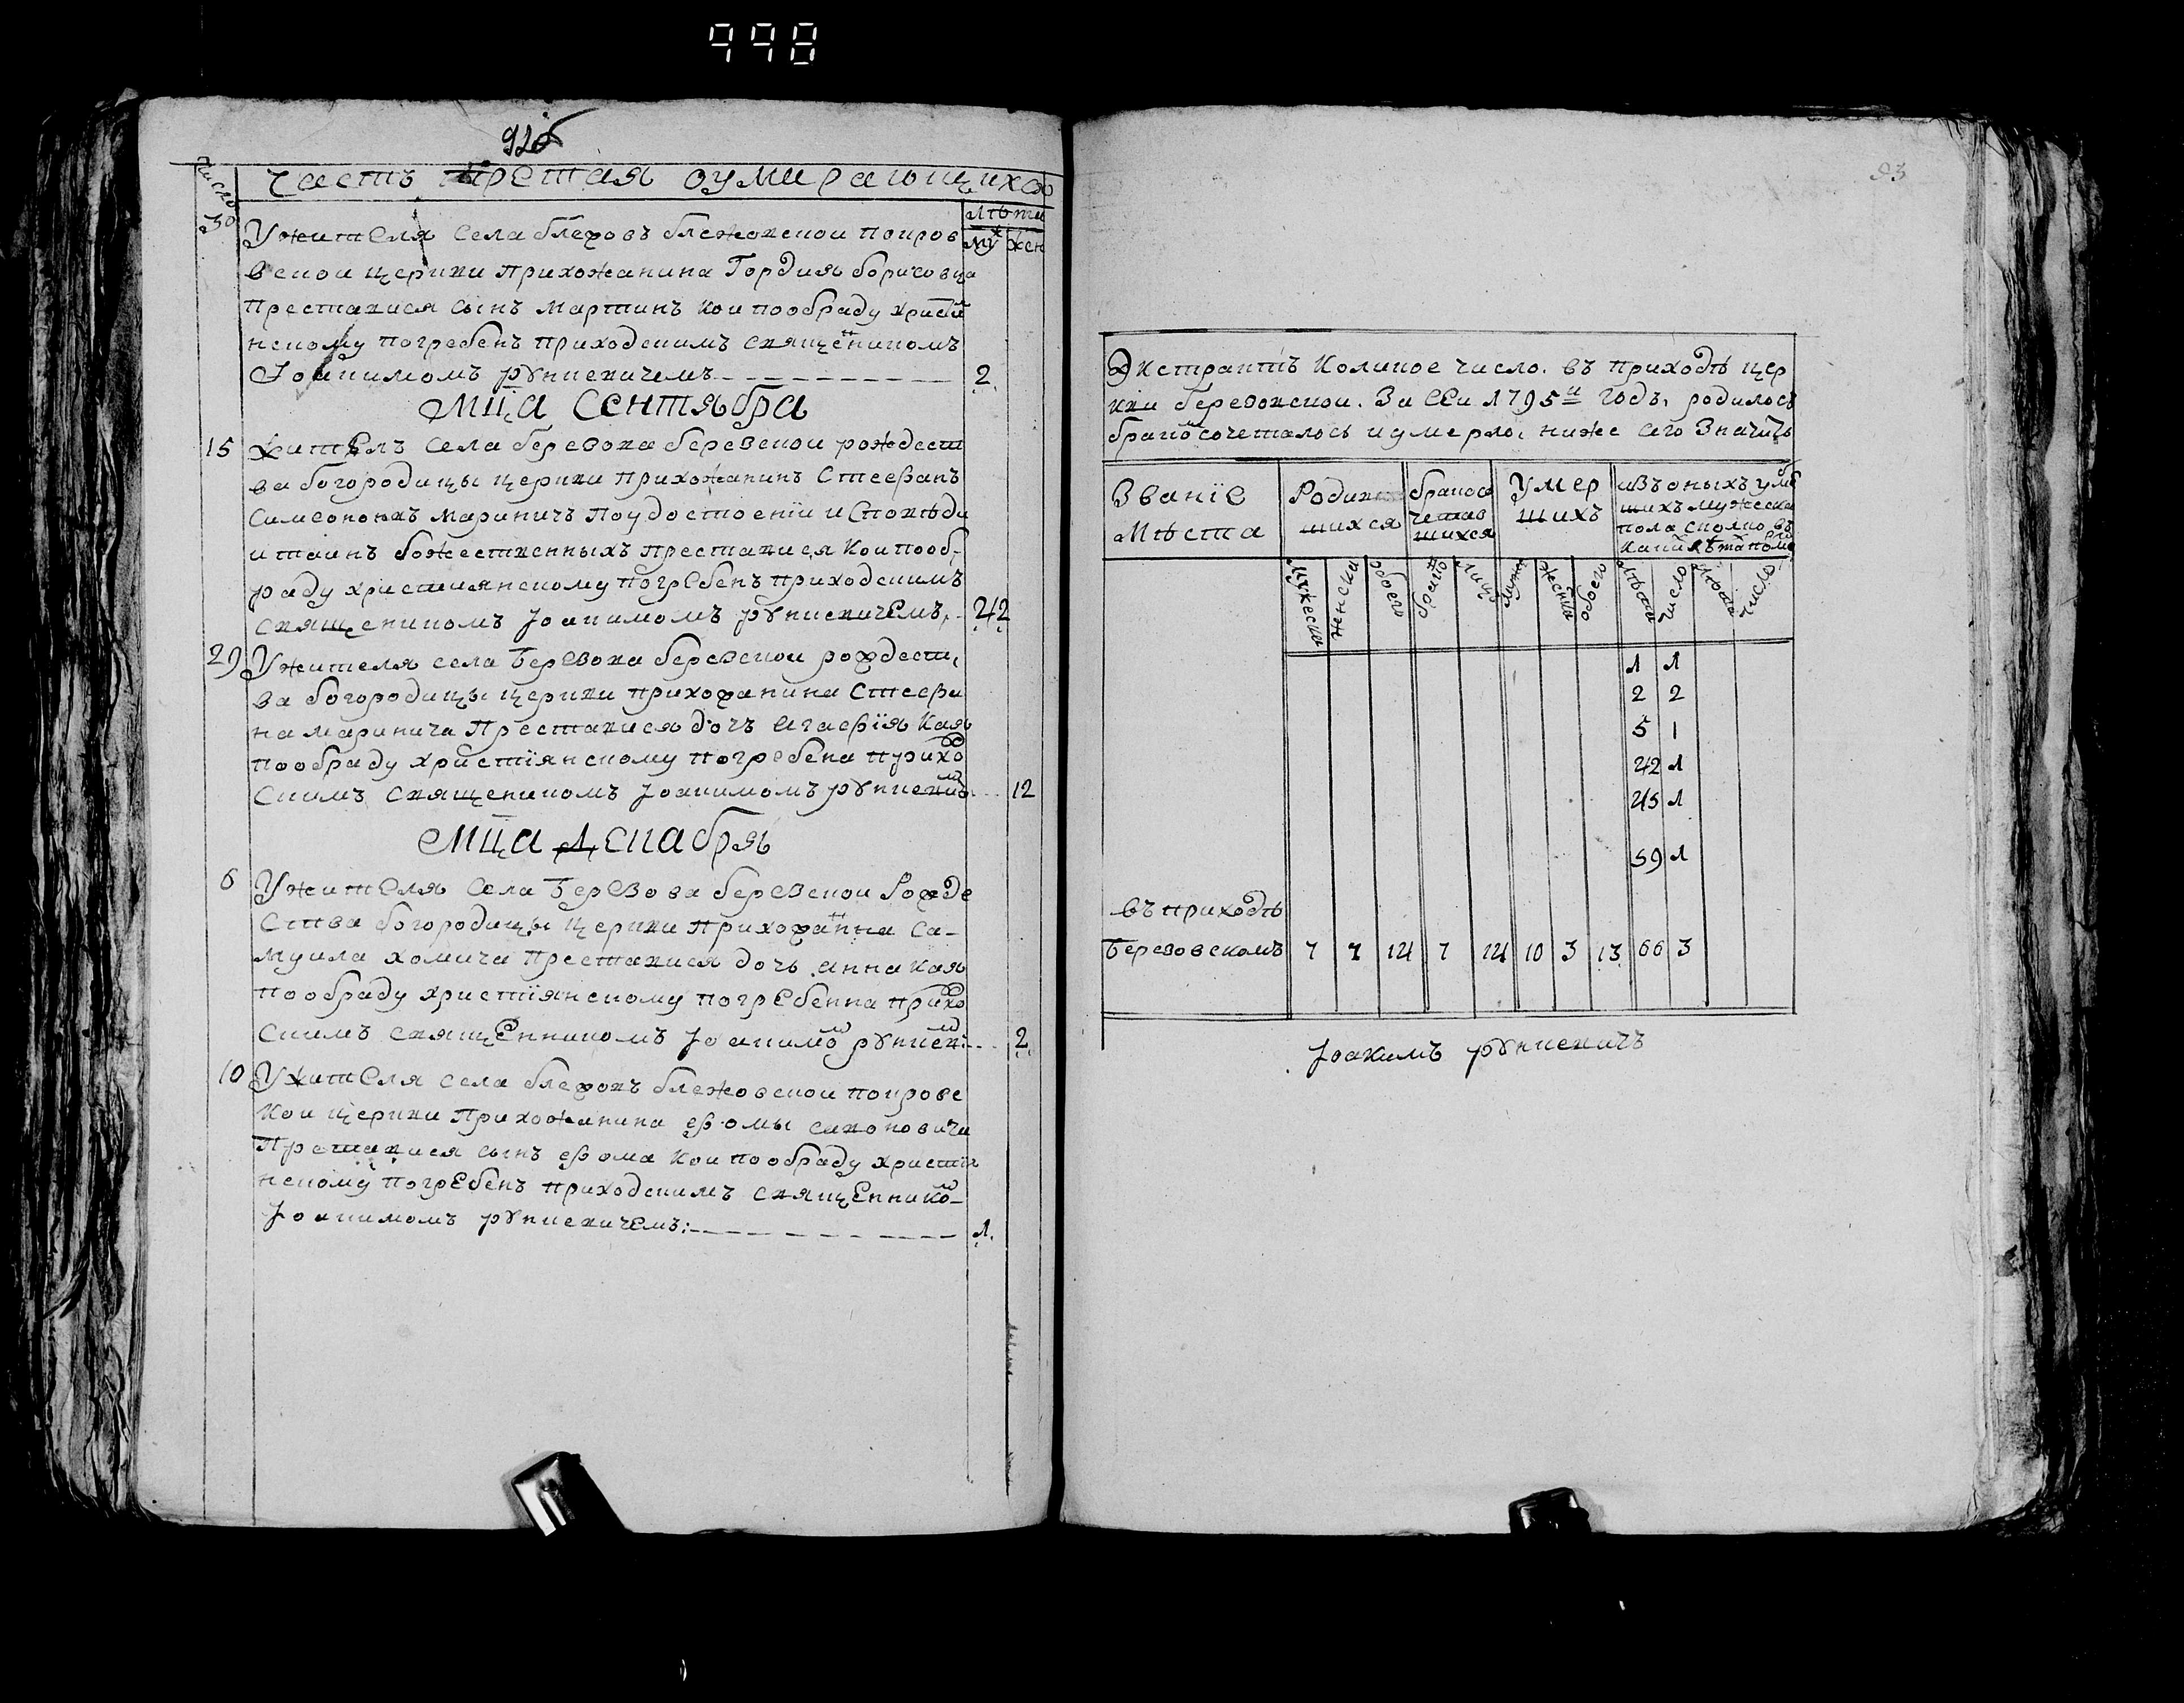 998
92об
Число
часть третая оумирающихъ
Лѣта
30
муж жен
Ужителя села блежовъ блежовской покров
вской церкви прихожанина Гордия борисовца
преставися сынъ мартинъ кои пообраду христия
нскому погребенъ приходскимъ священникомъ
Іоакимомъ рупневичемъ 2.
мца сентябра
15 житель села березова березской рождест
ва богородицы церкви прихожанинъ Стефанъ
симеоновъ мариничъ поудостоеніи исповѣди
итаинъ божественныхъ преставися кои пооб-
раду християнскому погребенъ приходскимъ
священикомъ Іоакимомъ рупневичемъ. 42
29 Ужителя села березова березской рождест,
ва богородицы церкви прихожанина стефа
на маринича преставися дочъ агафія кая
пообраду християнскому погребена прихо
скимъ священикомъ Іоакимомъ рупневич 12
мца декабря
6 Ужителя села березова березской рожде
ства богородицы церкви прихожанина са-
муила хомича преставися дочъ анна кая
пообраду християнскому погребенна прихо
скимъ священникомъ Іоакимо рупнев: 2.
10 Ужителя села блежовъ блежовской покровс
кой церкви прихожанина фомы
преставися сынъ фома кои пообраду християн
нскому погребенъ приходскимъ священнико
Іоакимомъ рупневичемъ: 1.
93
Экстрактъ коликое число. въ приходѣ цер
кви березовской. За сей 1795й годъ, родилось
бракосочеталось иумерло, ниже сего значитъ
Званіе мѣста
Родившихся
бракосочетавшихся
Умершихъ
изъ оныхъ умершихъ мужеска пола сколко въ
мужеска женска обоего брако лицъ мужс женска обоего лѣта число лѣта число
1 1
2 2
5 1
42 1
45 1
59 1
въ приходѣ
березовскомъ 7 7 14 7 14 10 3 13 66 3
Іоакимъ рупневичъ